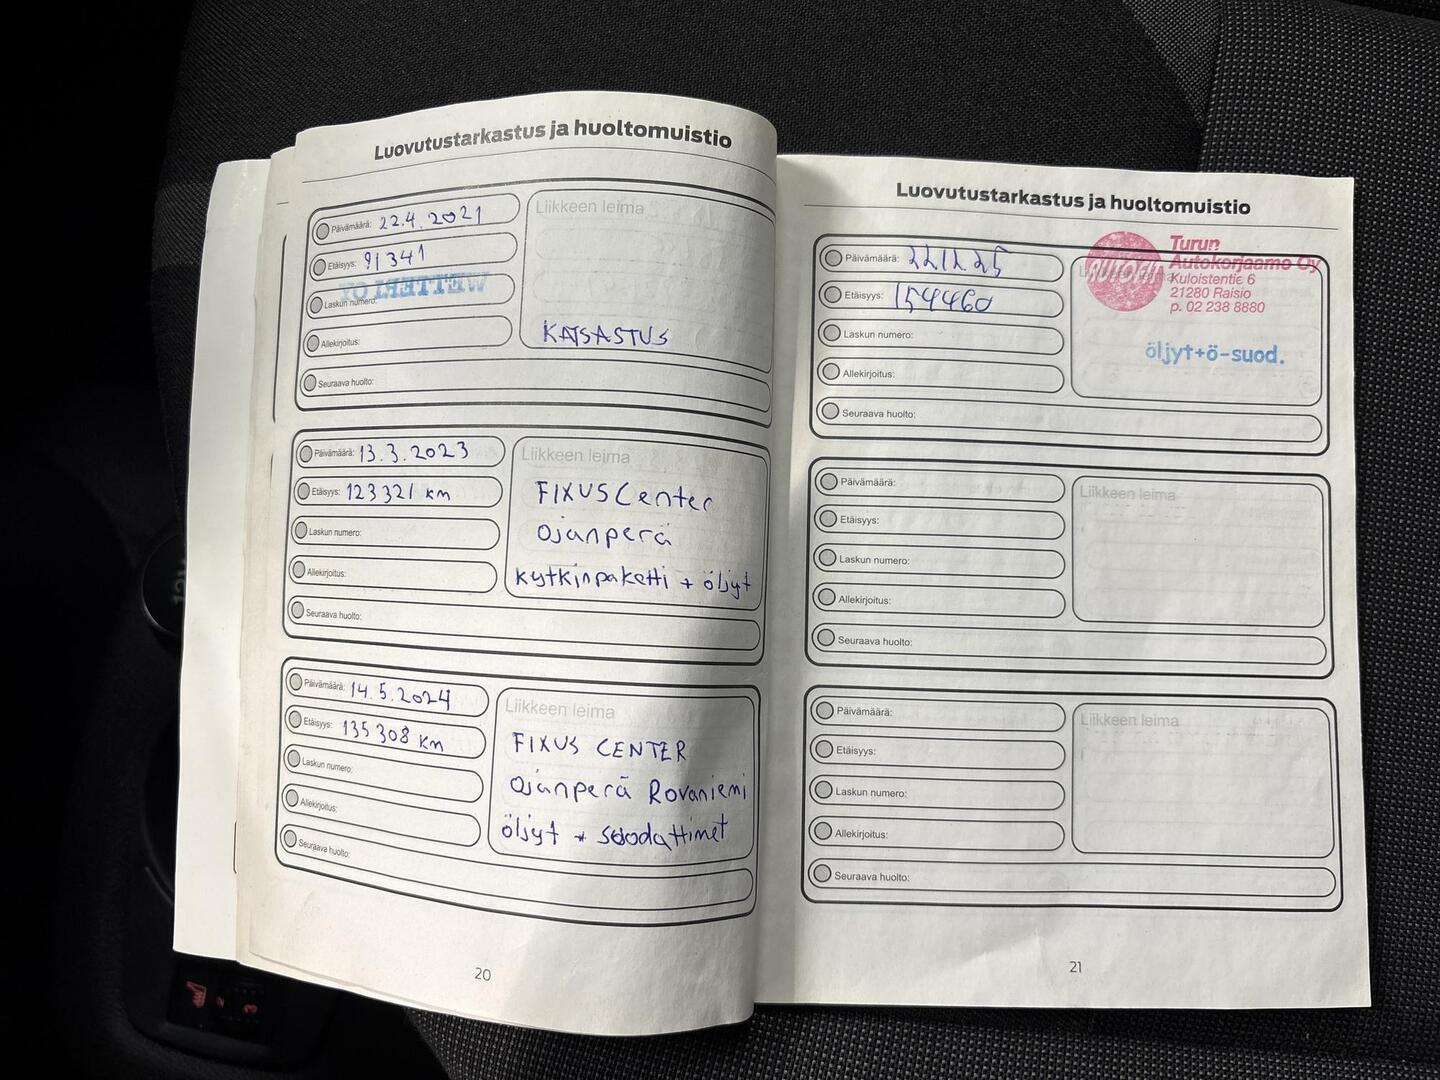 Luovutustarkastus ja huoltomuistio
Päivämäärä: 22.4.2021
Liikkeen leima
Etäisyys: 91341
WETTERI OY
Laskun numero:
KATSASTUS
Allekirjoitus:
Seuraava huolto:
Päivämäärä: 13.3.2023
Liikkeen leima
Etäisyys: 123321 km
FIXUS Center
Laskun numero:
Ojanperä
Allekirjoitus:
kytkinpaketti + öljyt
Seuraava huolto:
Päivämäärä: 14.5.2024
Liikkeen leima
Etäisyys: 135308 km
FIXUS CENTER
Laskun numero:
Ojanperä Rovaniemi
Allekirjoitus:
öljyt + suodattimet
Seuraava huolto:
20
Luovutustarkastus ja huoltomuistio
Päivämäärä:
Turun
Autokorjaamo Oy
Kuloistentie 6
21280 Raisio
p. 02 238 8880
Etäisyys: 154460
Laskun numero:
öljyt+ö-suod.
Allekirjoitus:
Seuraava huolto:
Päivämäärä:
Liikkeen leima
Etäisyys:
Laskun numero:
Allekirjoitus:
Seuraava huolto:
Päivämäärä:
Liikkeen leima
Etäisyys:
Laskun numero:
Allekirjoitus:
Seuraava huolto:
21